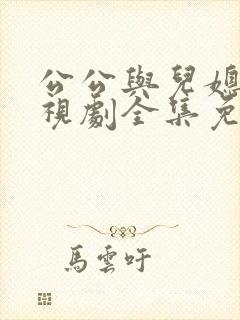 公公與兒媳
視劇全集免
馬雲吁